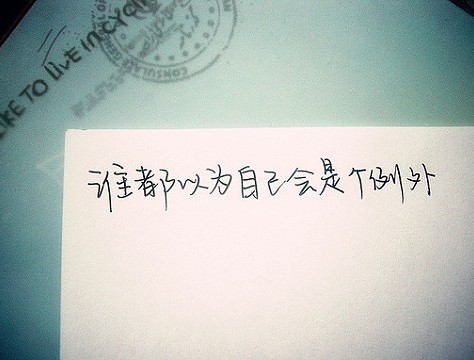 LIKE TO LIVE IN
CONSULATE GENER
谁都以为自己会是个例外